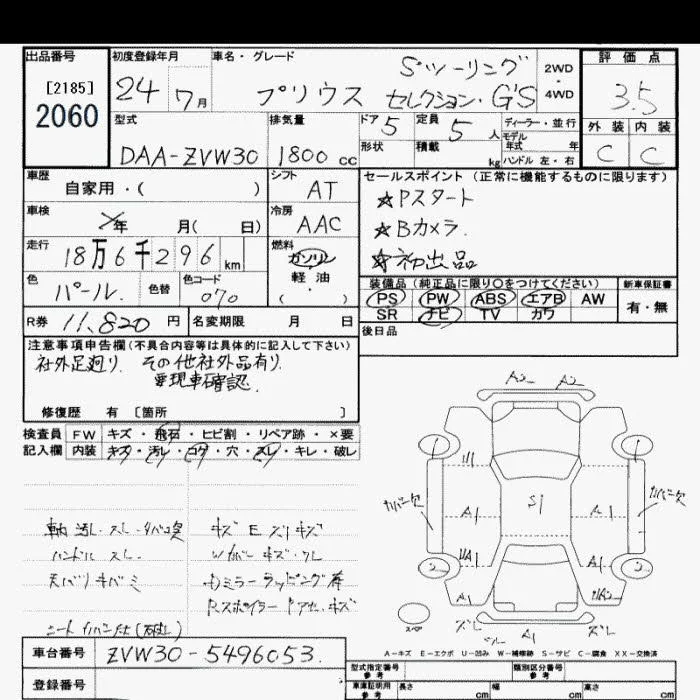 出品番号
[2185]
2060
初度登録年月
24 7月
車名・グレード
Sツーリング
プリウス セレクション・G'S
2WD
・
4WD
評価点
3.5
外装 内装
C C
型式
DAA-ZVW30
排気量
1800 cc
ドア 5
定員 5 人
形状
積載 kg
ディーラー・並行
モデル
年式 年
ハンドル 左・右
車歴
自家用・( )
シフト
AT
車検
年 月( 日)
冷房
AAC
走行
18万6千296 km
燃料
ガソリン
軽油
( )
色
パール
色替
色コード
070
R券 11,820 円
名変期限 月 日
セールスポイント(正常に機能するものに限ります)
☆Pスタート
☆Bカメラ
☆初出品
装備品(純正品に限り○をつけてください)
PS PW ABS エアB AW
SR ナビ TV カワ
新車保証書
有・無
後日品
注意事項申告欄(不具合内容等は具体的に記入して下さい)
社外足廻り その他社外品有り
要現車確認
修復歴 有 [箇所 ]
検査員 FW キズ・飛石・ヒビ割・リペア跡・×要
記入欄 内装 キズ・汚レ・コゲ・穴・スレ・キレ・破レ
ハンドル スレ
天バリ キバミ
キズ E ズリキズ
Wカバー キズ・ワレ
ミラー ラッピング有
Rスポイラー
A2 A2
A1
S1
A1 A1
A1
A1
A1
ズレ
A1
ズレ
スペア
A-キズ E-エクボ U-凹み W-補修跡 S-サビ C-腐食 XX-交換済
車台番号
ZVW30-5496053
登録番号
型式指定番号
参考
類別区分番号
参考
車庫証明用
参考
長さ cm 幅 cm 高さ cm